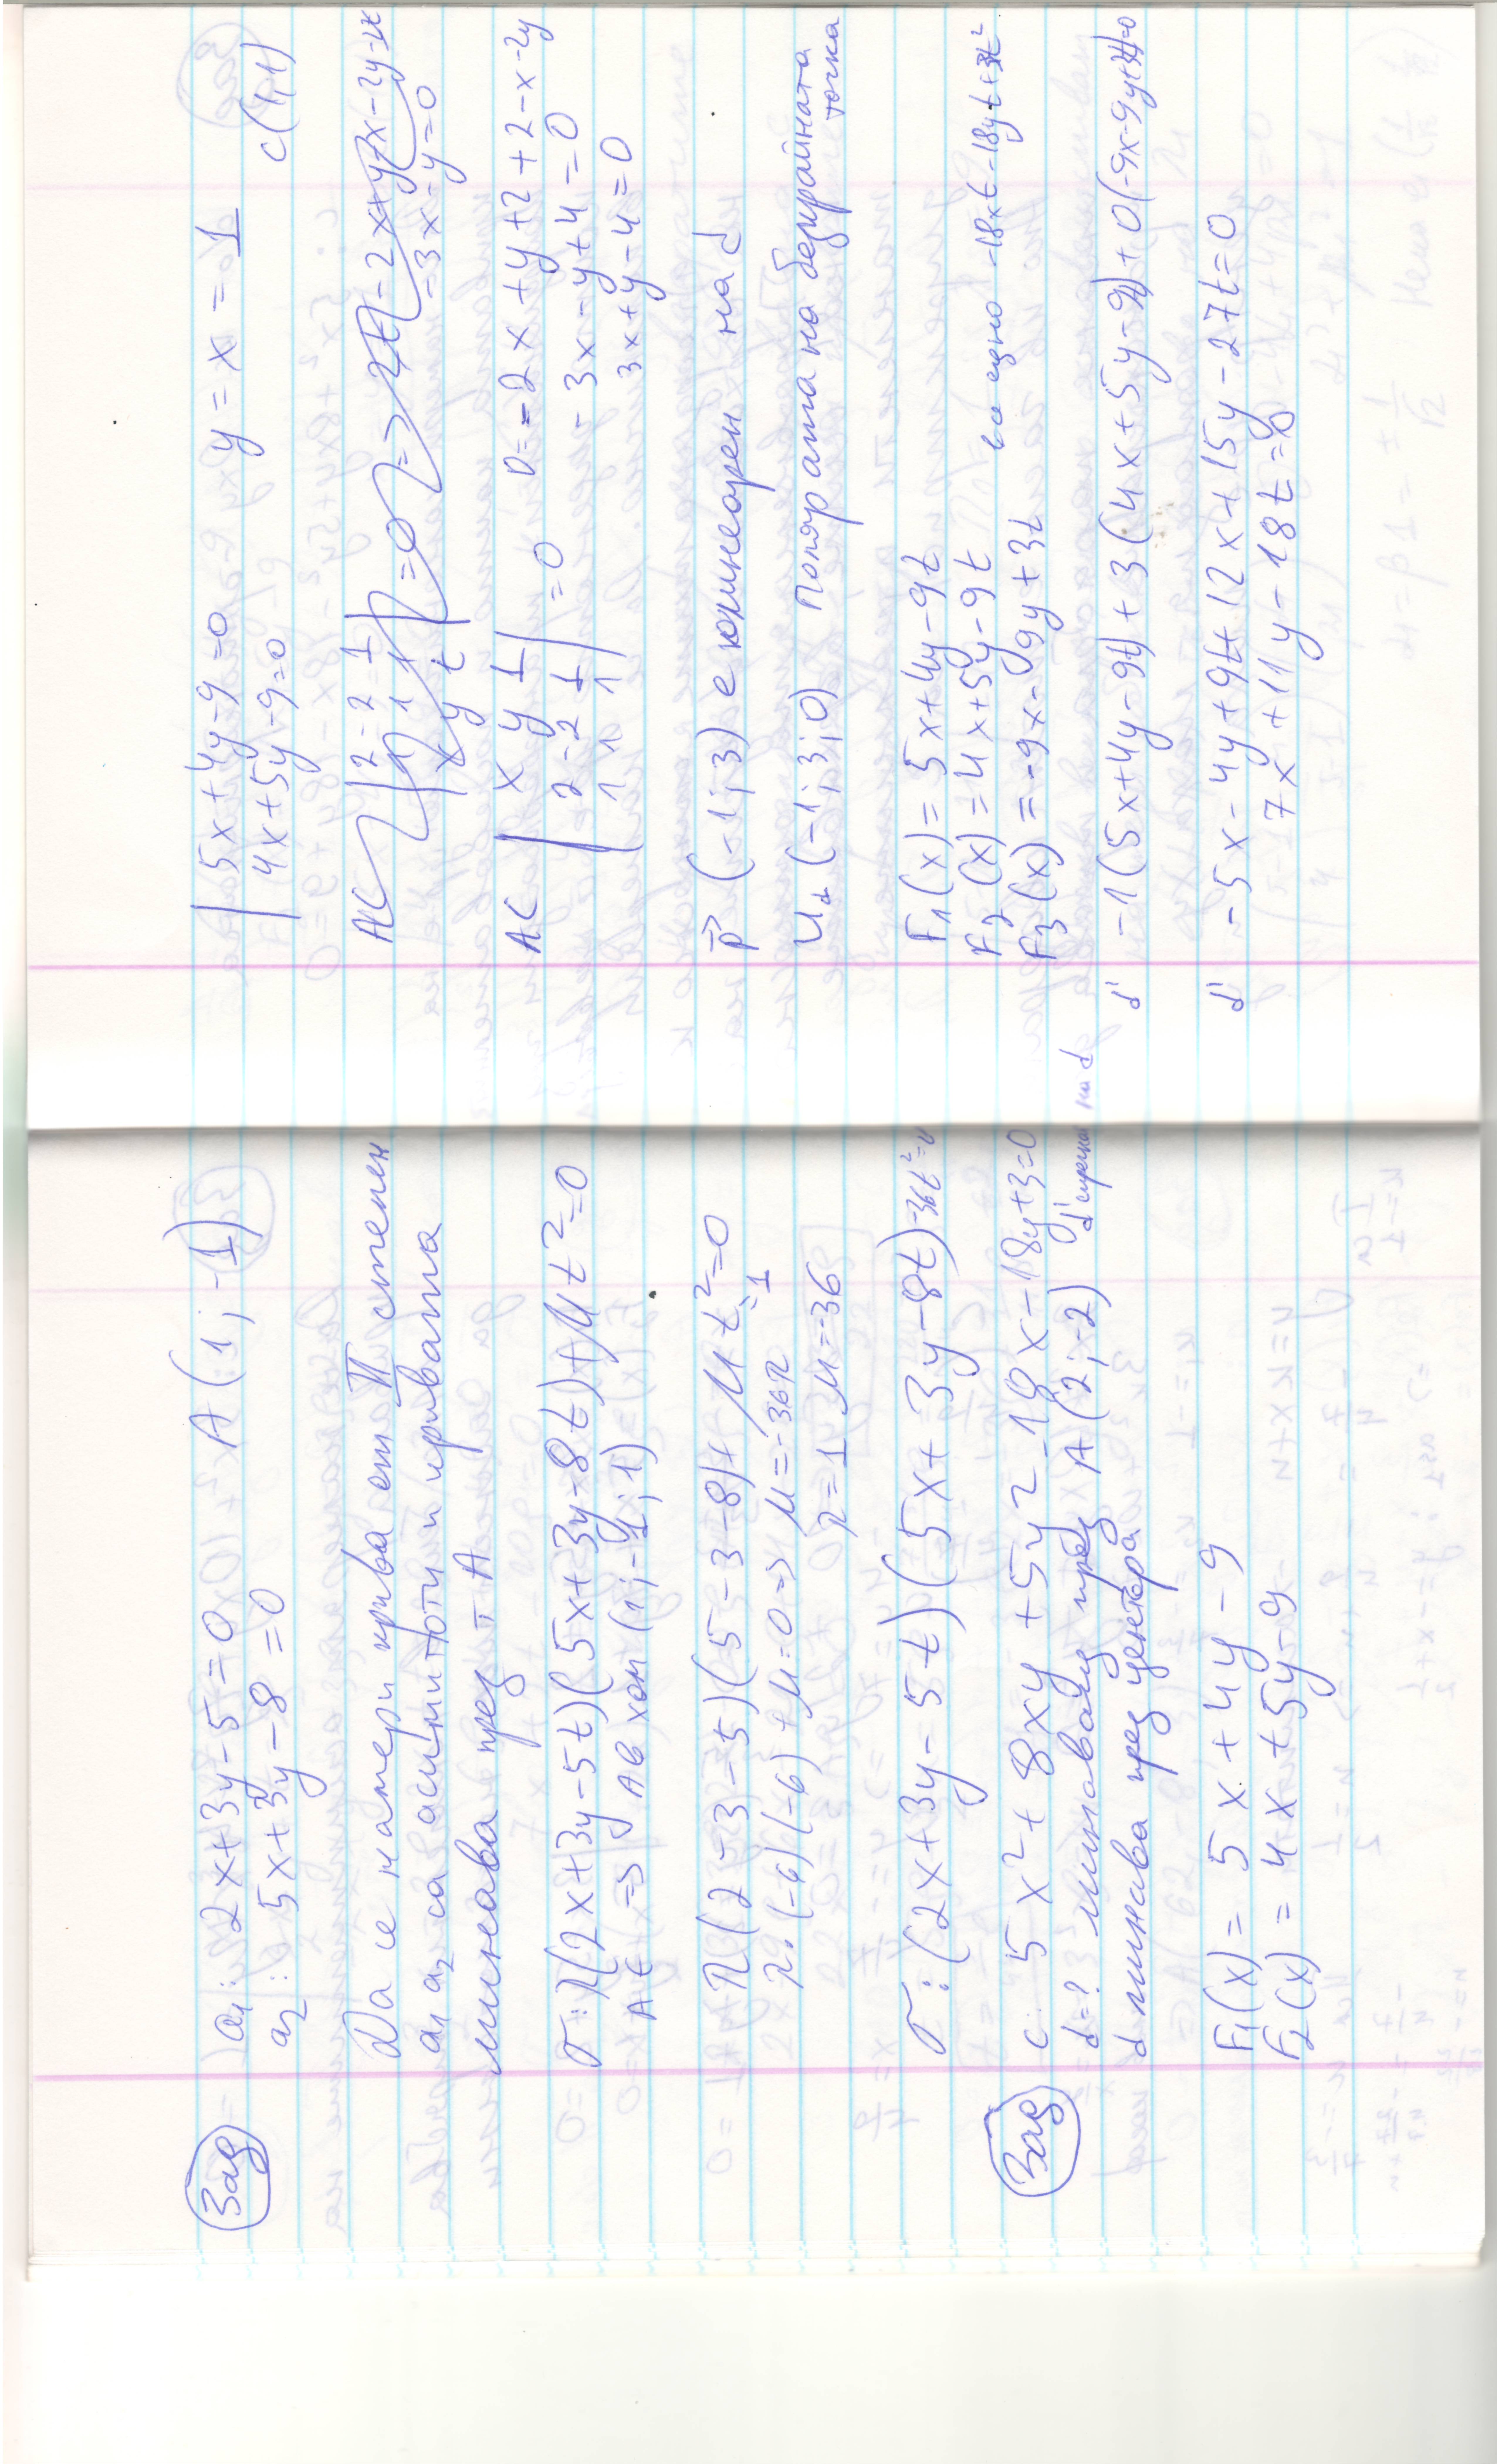 Зад
a₁: 2x+3y-5=0 A(1;-1)
a₂: 5x+3y-8=0
Да се намери крива от II степен
a₁ a₂ са асимптоти и кривата
минава през т A
σ: λ(2x+3y-5t)(5x+3y-8t)+μt²=0
A ∈ => A в хом (1;-1;1)
λ(2-3-5)(5-3-8)+μt²=0
=1
λ.(-6)(-6)+μ=0 => μ=-36λ
λ=1 μ=-36
σ: (2x+3y-5t)(5x+3y-8t)-36t²=0
Зад
c: 5x²+8xy+5y²-18x-18y+3=0
d=? минаващ през A(2;-2) d' спрегнат на d
d минава през центъра
F₁(x)= 5x+4y-9
F₂(x)= 4x+5y-9
| 5x+4y-9=0
4x+5y-9=0 y=x=1 C(1,1)
AC |x y 1
2 -2 1
1 1 1| =0
0=-2x+y+2+2-x-2y
-3x-y+4=0
3x+y-4=0
p⃗ (-1;3) е колинеарен на d
U_d (-1;3;0) Полярата на безкрайната точка
F₁(x)= 5x+4y-9t
F₂(x)= 4x+5y-9t
F₃(x)= -9x-9y+3t все едно -18xt-18yt+3t²
d' -1(5x+4y-9t)+3(4x+5y-9t)+0(-9x-9y+3t)=0
d' -5x-4y+9t+12x+15y-27t=0
7x+11y-18t=0